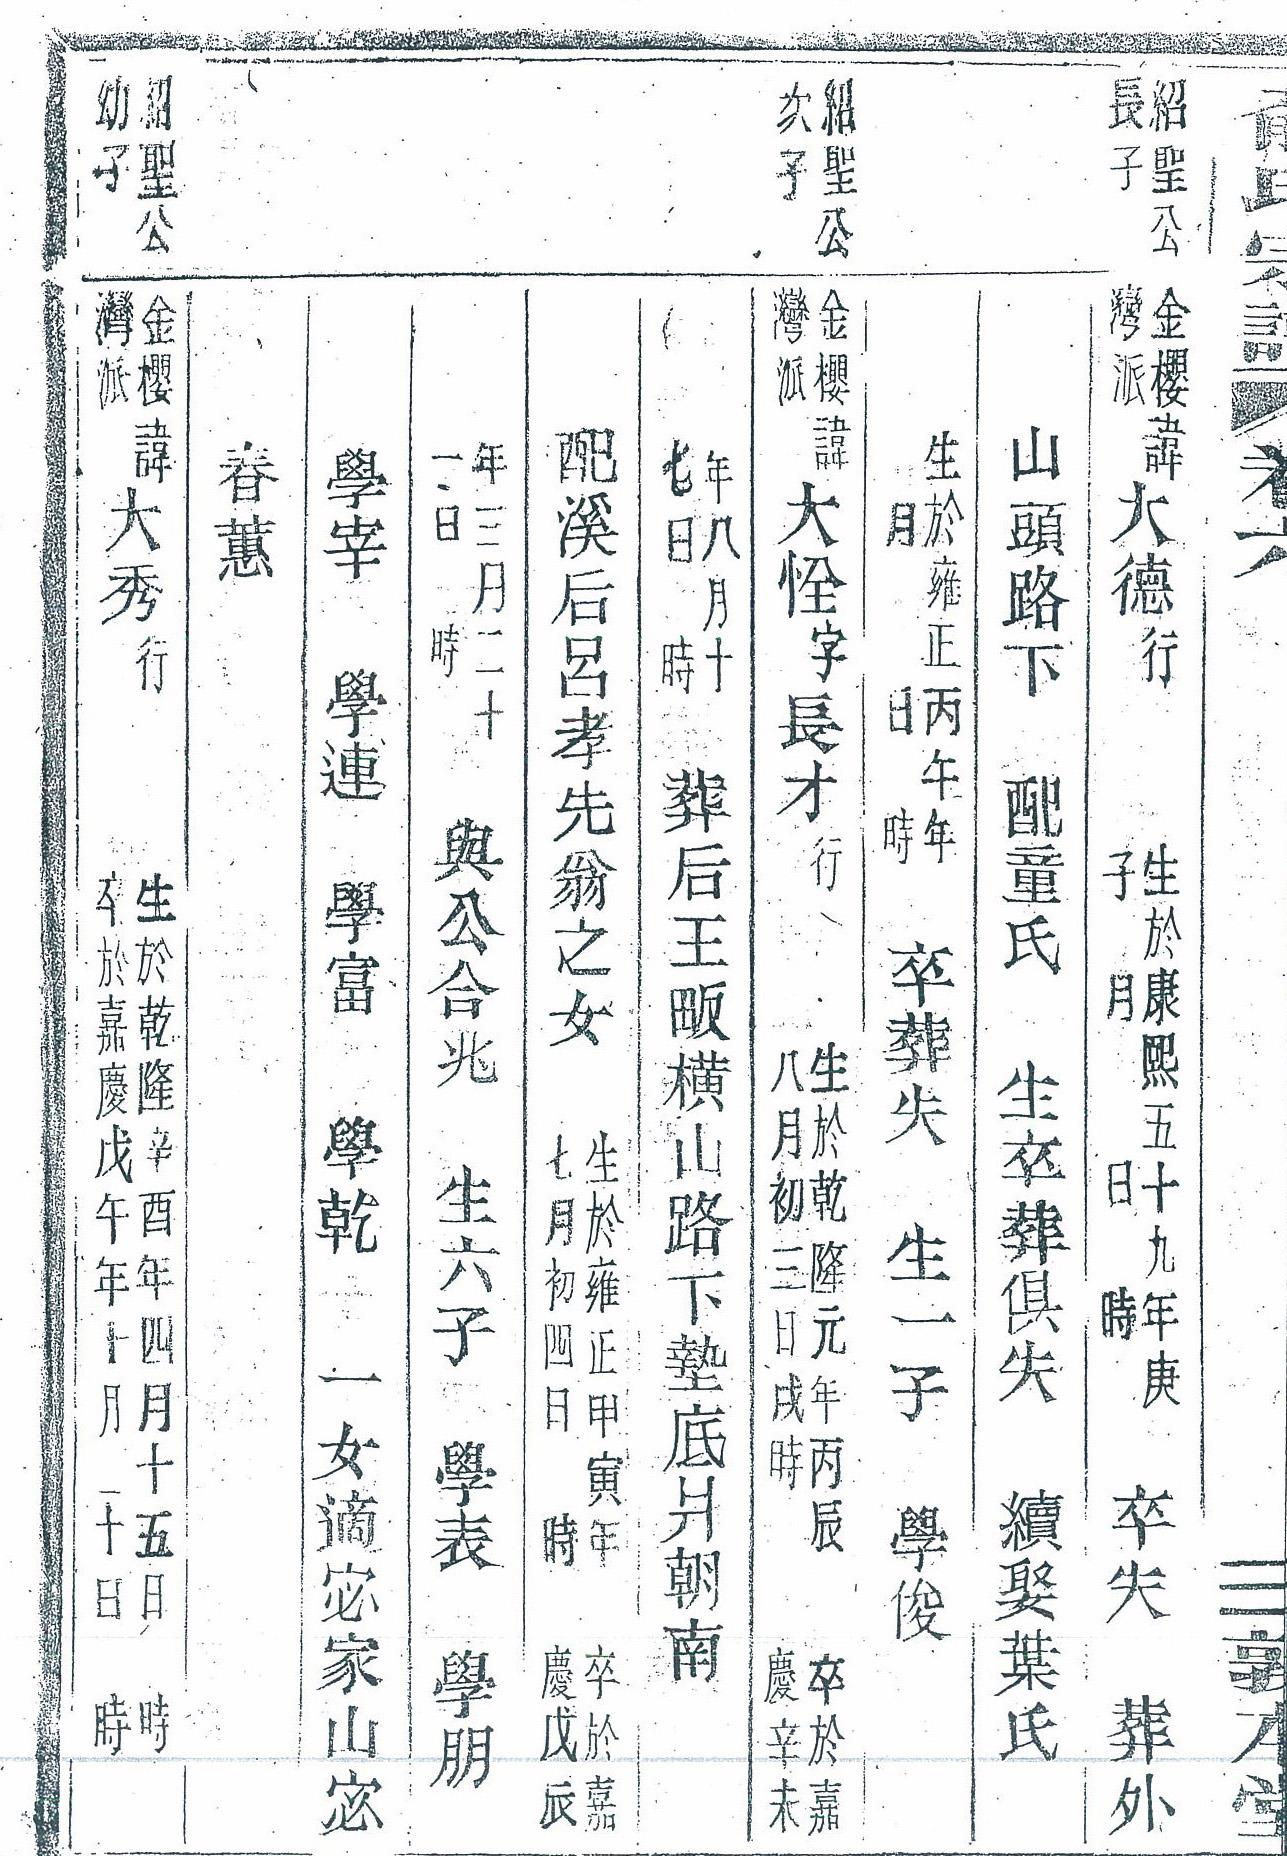 俞氏宗譜 卷六 三 敦本堂
紹聖公
長子
金櫻
灣派
諱大德行
生於康熙五十九年庚
子 月 日 時
卒失 葬外
山頭路下 配童氏 生卒葬俱失 續娶葉氏
生於雍正丙午年
月 日 時
卒葬失 生一子 學俊
紹聖公
次子
金櫻
灣派
諱大恠字長才行
生於乾隆元年丙辰
八月初三日戌時
卒於嘉
慶辛未
年八月十
七日 時
葬后王畈橫山路下墊底爿朝南
配溪后呂孝先翁之女
生於雍正甲寅年
七月初四日 時
卒於嘉
慶戊辰
年三月二十
一日 時
與公合兆 生六子 學表 學朋
學宰 學連 學富 學乾 一女適宓家山宓
春蕙
紹聖公
幼子
金櫻
灣派
諱大秀行
生於乾隆辛酉年四月十五日 時
卒於嘉慶戊午年十月二十日 時